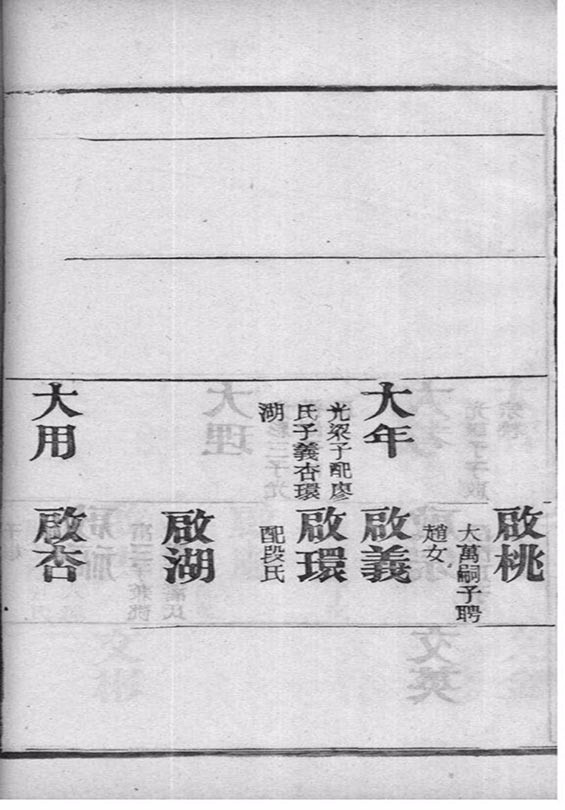 大年
光梁子配廖
氏子義杏環
湖
大用
啟桃
大萬嗣子聘
趙女
啟義
啟環
配段氏
啟湖
啟杏